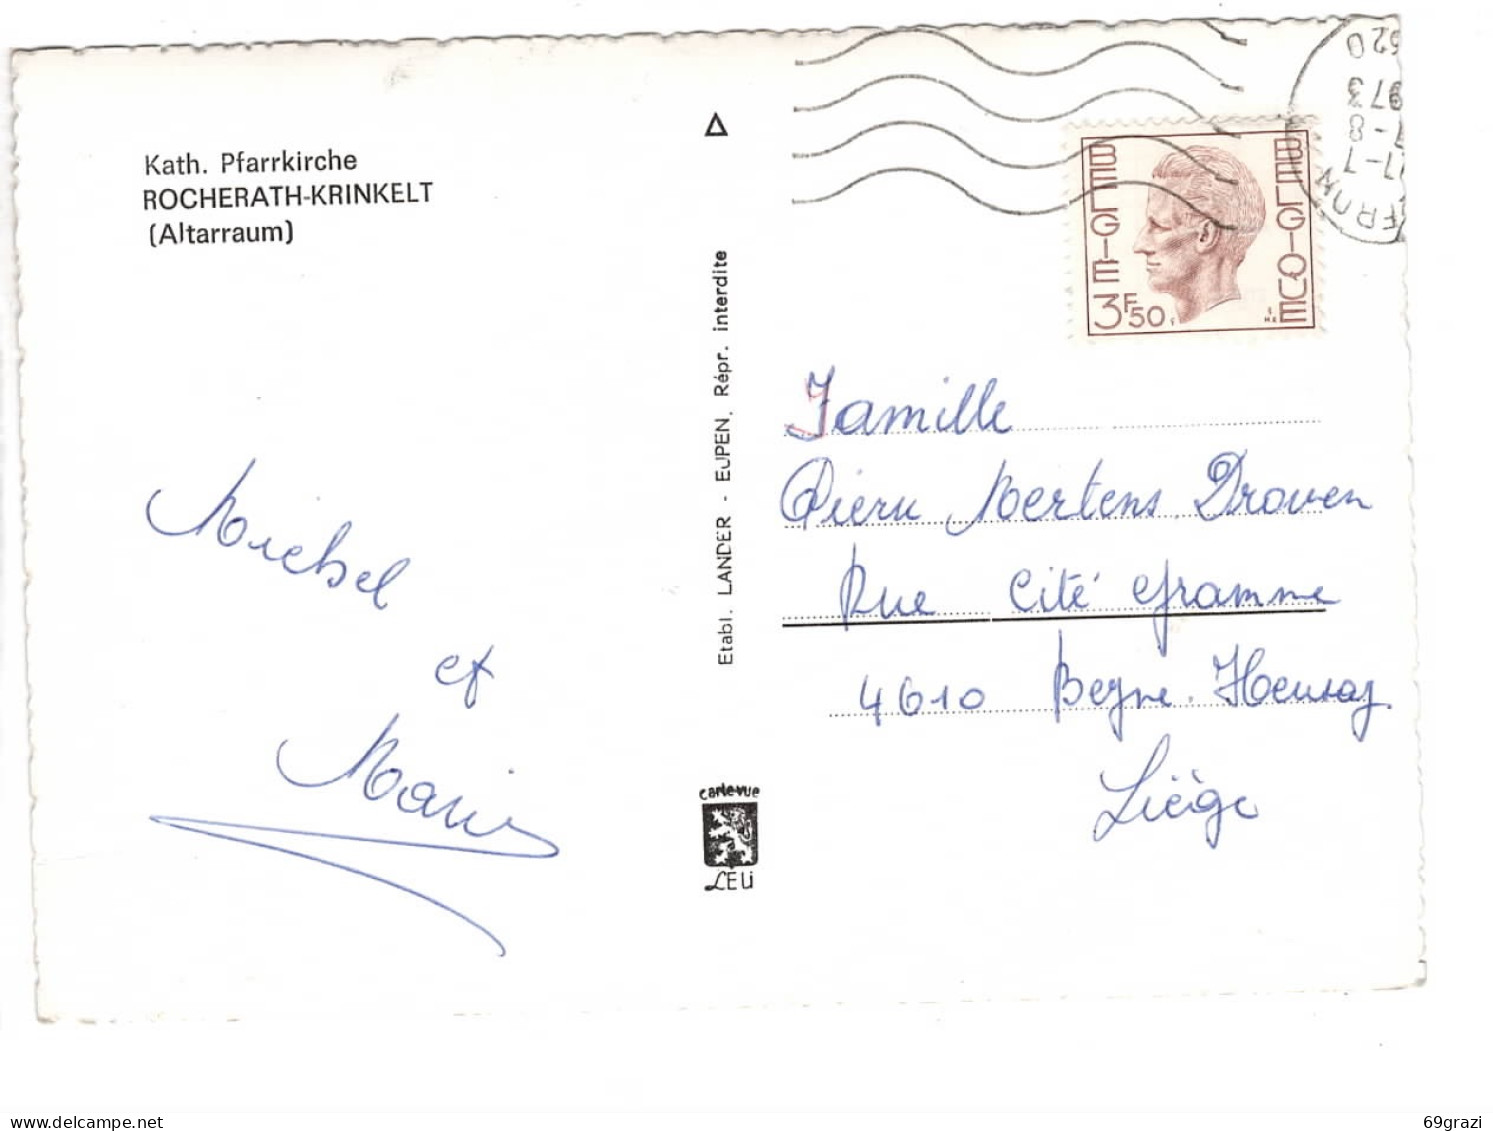 Kath. Pfarrkirche
ROCHERATH-KRINKELT
(Altarraum)
Michel
et
Marie
Etabl. LANDER - EUPEN. Répr. interdite
carte vue
LELi
BELGIE
BELGIQUE
3F50
620
973
-8
17-7
Famille
Mertens Droven
Rue Cité Gramme
4610 Beyne-Heusay
Liège
delcampe.net
69grazi